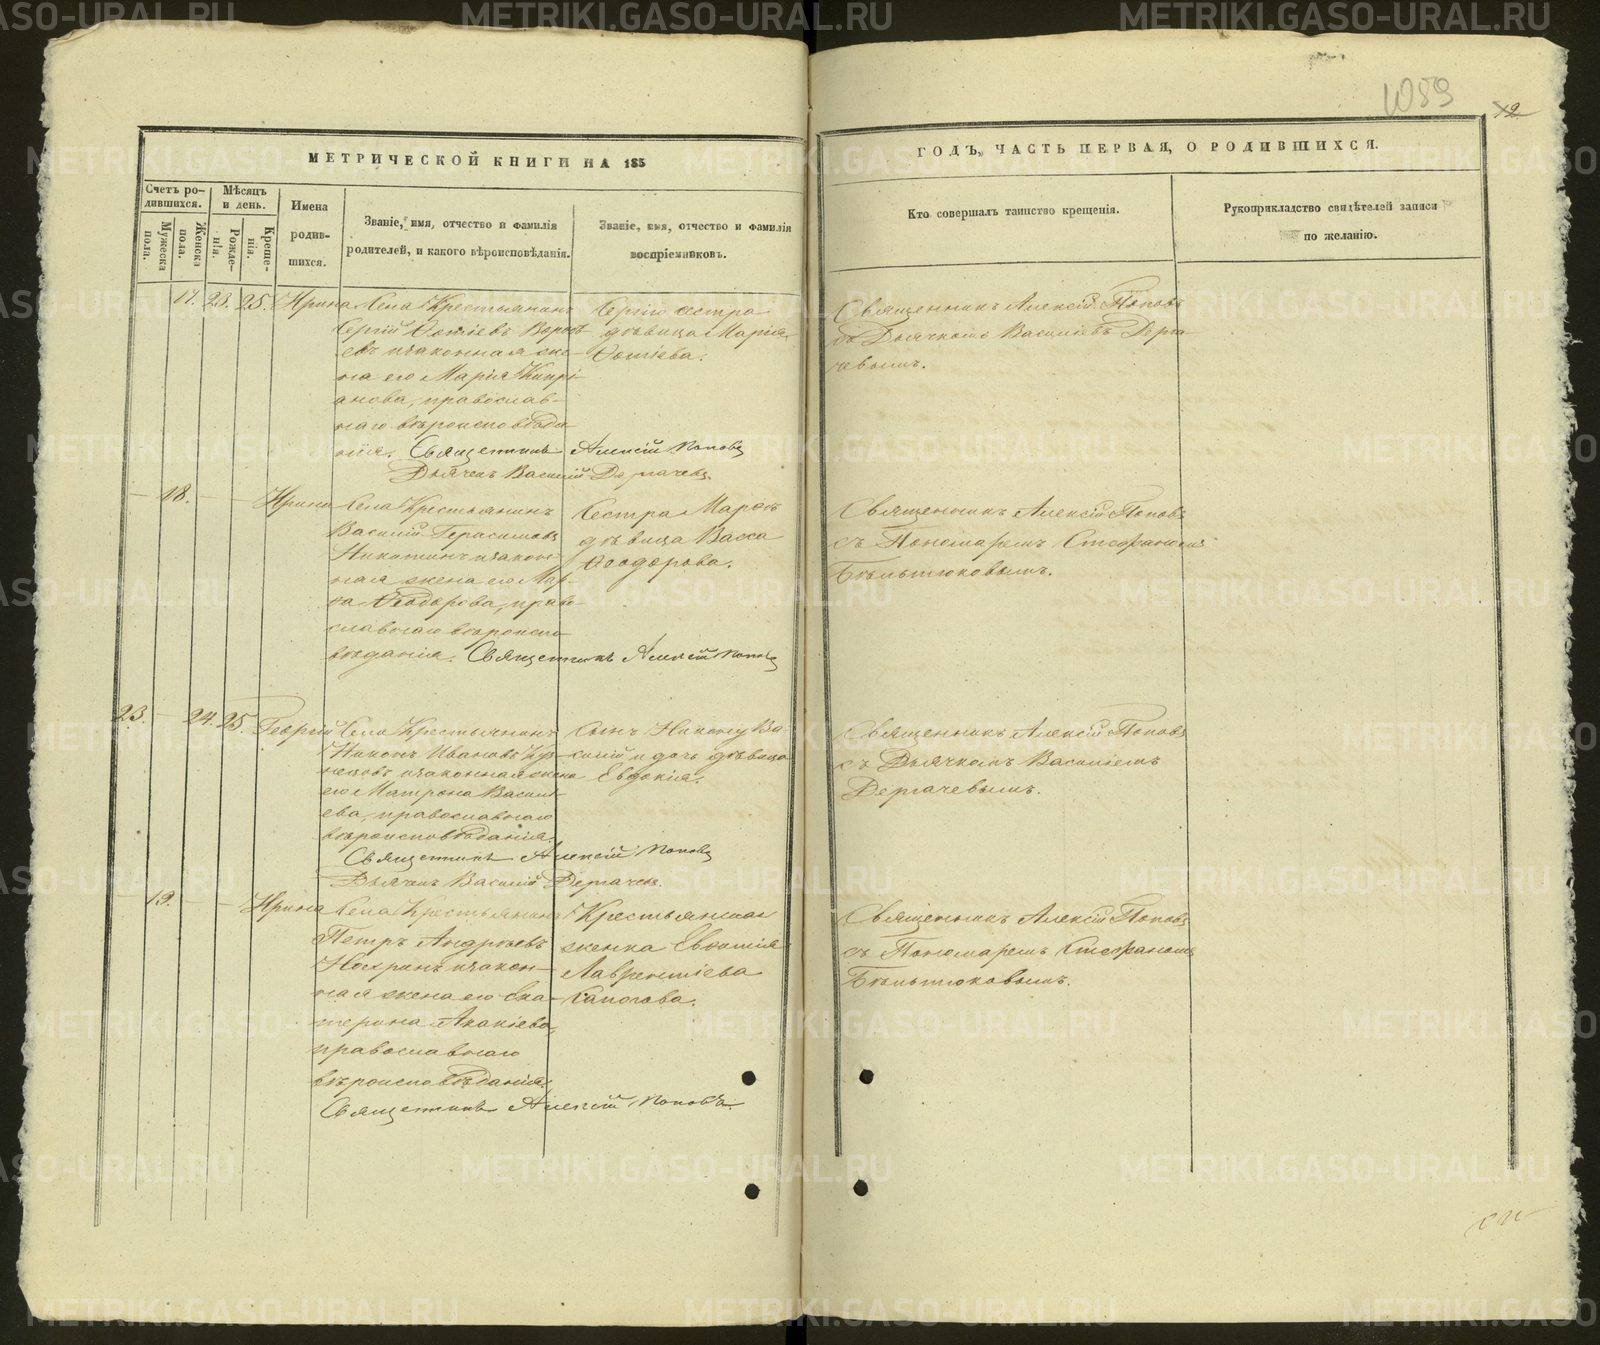 1059
12
МЕТРИЧЕСКОЙ КНИГИ НА 185
ГОДЪ, ЧАСТЬ ПЕРВАЯ, О РОДИВШИХСЯ.
Счетъ ро-
дившихся.
Мужеска
пола.
Женска
пола.
Мѣсяцъ
и день.
Рожде-
нія.
Креще-
нія.
Имена
родив-
шихся.
Званіе, имя, отчество и фамилія
родителей, и какого вѣроисповѣданія.
Званіе, имя, отчество и фамилія
воспріемниковъ.
Кто совершалъ таинство крещенія.
Рукоприкладство свидѣтелей записи
по желанію.
17. 23. 25. Ирина
Села Крестьянинъ
Сергій
и законная же-
на его Марія Кипрі-
анова, православ-
наго вѣроисповѣда-
нія. Священникъ Алексій Поповъ
Дьячекъ Василій Дергачевъ.
Сергію сестра
дѣвица Марія
Священникъ Алексій Поповъ
съ Дьячкомъ Василіемъ Дерга-
чевымъ.
18. Ирина
Села Крестьянинъ
Василій Герасимовъ
Никитинъ и закон-
ная жена его Мар-
Ѳеодорова, право-
славнаго вѣроиспо-
вѣданія. Священникъ Алексій Поповъ
Сестра
дѣвица Васса
Ѳеодорова.
Священникъ Алексій Поповъ
съ Пономаремъ Стефаномъ
Бѣльтюковымъ.
23. 24. 25. Георгій
Села Крестьянинъ
Никонъ Ивановъ Куз-
нецовъ и законная жена
его Матрона Василь-
ева, православнаго
вѣроисповѣданія.
Священникъ Алексій Поповъ
Дьячекъ Василій Дергачевъ.
Сынъ Никону Ва-
силій и дочь дѣвица
Евдокія.
Священникъ Алексій Поповъ
съ Дьячкомъ Василіемъ
Дергачевымъ.
19. Ирина
Села Крестьянинъ
Петръ Андреевъ
и закон-
ная жена его Ека-
терина Акакіева,
православнаго
вѣроисповѣданія.
Священникъ Алексій Поповъ.
Крестьянская
женка Евфимія
Лаврентіева
Священникъ Алексій Поповъ
съ Пономаремъ Стефаномъ
Бѣльтюковымъ.
METRIKI.GASO-URAL.RU